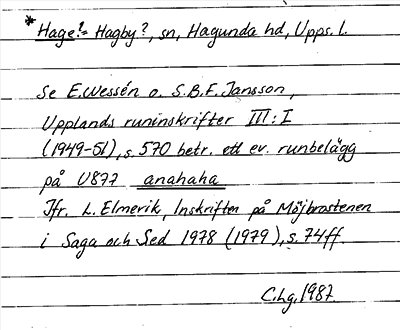 *Hage?= Hagby?, sn, Hagunda hd, Upps. l.
Se E. Wessén o. S.B.F. Jansson,
Upplands runinskrifter III:I
(1949-51), s. 570 betr. ett ev. runbelägg
på U877 anahaha
Jfr. L. Elmevik, Inskriften på Möjbrostenen
i Saga och Sed 1978 (1979), s. 74ff.
C.Lg. 1987